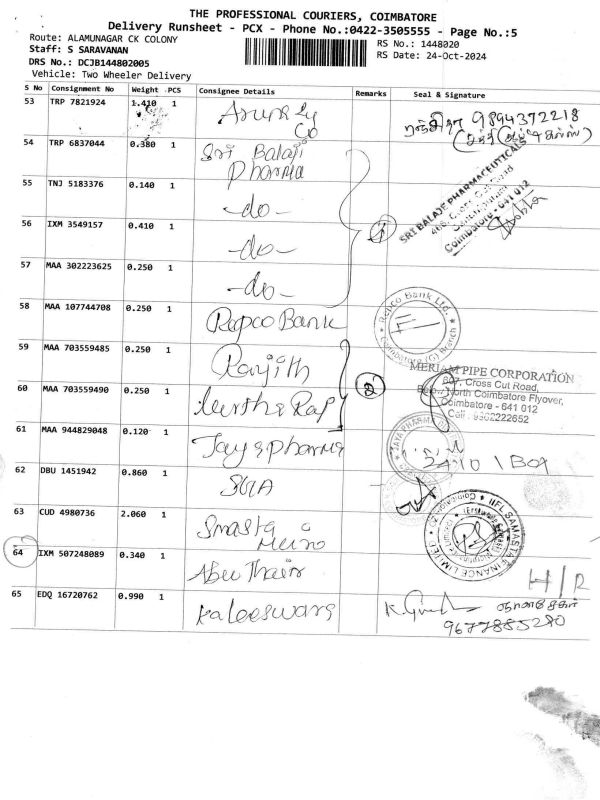 THE PROFESSIONAL COURIERS, COIMBATORE
Delivery Runsheet - PCX - Phone No.:0422-3505555 - Page No.:5
Route: ALAMUNAGAR CK COLONY
RS No.: 1448020
Staff: S SARAVANAN
RS Date: 24-Oct-2024
DRS No.: DCJB144802005
Vehicle: Two Wheeler Delivery
S No Consignment No Weight PCS Consignee Details Remarks Seal & Signature
53 TRP 7821924 1.410 1 9894372218
Co
54 TRP 6837044 0.380 1 Sri Balaji
Pharma
SRI BALAJE PHARMACEUTICALS
Coimbatore - 641 012
55 TNJ 5183376 0.140 1 -do-
56 IXM 3549157 0.410 1 -do-
57 MAA 302223625 0.250 1 -do-
58 MAA 107744708 0.250 1 Repco Bank
Repco Bank Ltd.
Coimbatore (G) Branch
59 MAA 703559485 0.250 1 Ranjith
2
MERIAM PIPE CORPORATION
807, Cross Cut Road,
North Coimbatore Flyover,
Coimbatore - 641 012
Cell : 9362222652
60 MAA 703559490 0.250 1
61 MAA 944829048 0.120 1 Jaya pharma
JAYA PHARMA
24/10 1 Box
62 DBU 1451942 0.860 1
63 CUD 4980736 2.060 1
IIFL SAMASTA FINANCE LIMITED
64 IXM 507248089 0.340 1 Abu Thair
H/R
65 EDQ 16720762 0.990 1 Kaleeswara
9677885280